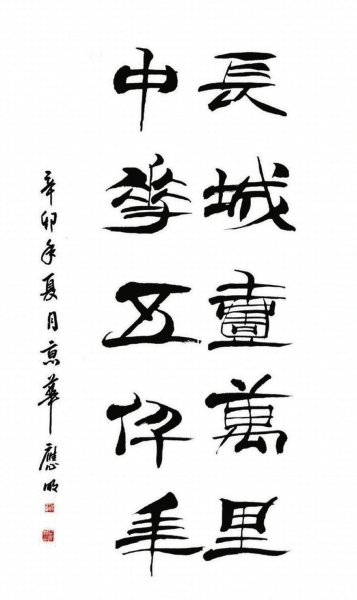 長城壹萬里
中華五仟年
辛卯年夏月京華應明